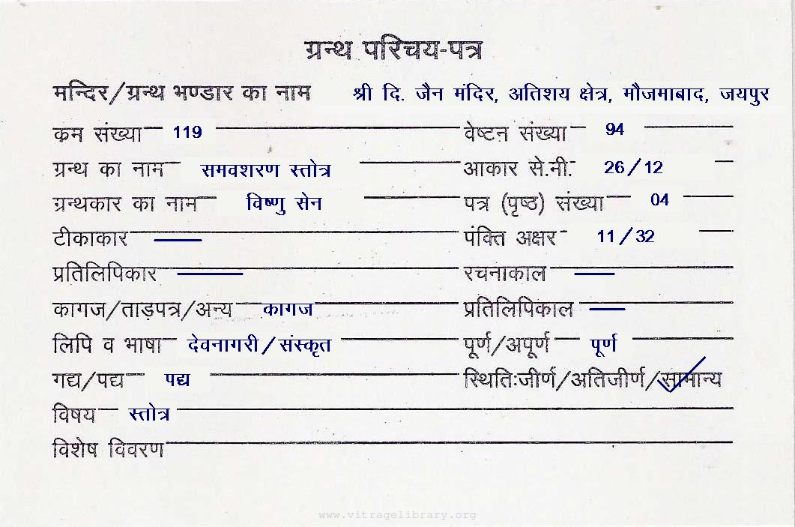 ग्रन्थ परिचय-पत्र
मन्दिर/ग्रन्थ भण्डार का नाम श्री दि. जैन मंदिर, अतिशय क्षेत्र, मौजमाबाद, जयपुर
कम संख्या 119 वेष्टन संख्या 94
ग्रन्थ का नाम समवशरण स्तोत्र आकार से.मी. 26/12
ग्रन्थकार का नाम विष्णु सेन पत्र (पृष्ठ) संख्या 04
टीकाकार — पंक्ति अक्षर 11/32
प्रतिलिपिकार — रचनाकाल —
कागज/ताड़पत्र/अन्य कागज प्रतिलिपिकाल —
लिपि व भाषा देवनागरी/संस्कृत पूर्ण/अपूर्ण पूर्ण
गद्य/पद्य पद्य स्थितिःजीर्ण/अतिजीर्ण/सामान्य
विषय स्तोत्र
विशेष विवरण
www.vitragelibrary.org